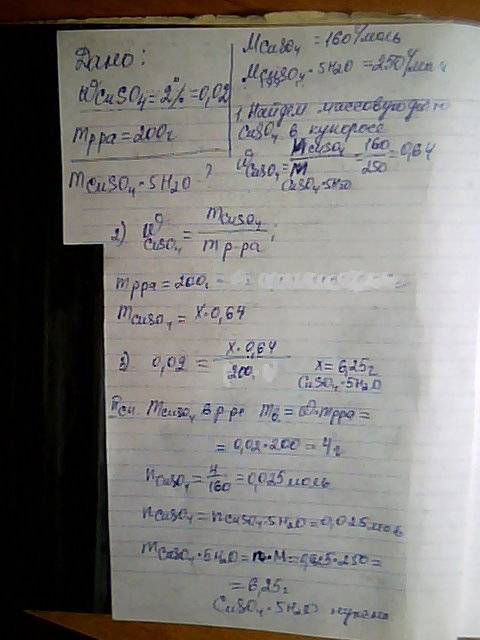 Дано:
WCuSO4 = 2% = 0,02
mрра = 200г
mCuSO4 · 5H2O ?
MCuSO4 = 160г/моль
MCuSO4 · 5H2O = 250г/моль
1. Найдем массовую долю
CuSO4 в купоросе
WCuSO4 = MCuSO4 / MCuSO4·5H2O = 160/250 = 0,64
2) WCuSO4 = mCuSO4 / mр-ра ;
mрра = 200г
mCuSO4 = x · 0,64
3) 0,02 = x · 0,64 / 200 x = 6,25г
CuSO4 · 5H2O
IIсп. mCuSO4 в р-ре mв = W · mрра =
= 0,02 · 200 = 4г
nCuSO4 = 4/160 = 0,025 моль
nCuSO4 = nCuSO4 · 5H2O = 0,025 моль
mCuSO4 · 5H2O = n · M = 0,025 · 250 =
= 6,25г
CuSO4 · 5H2O нужно